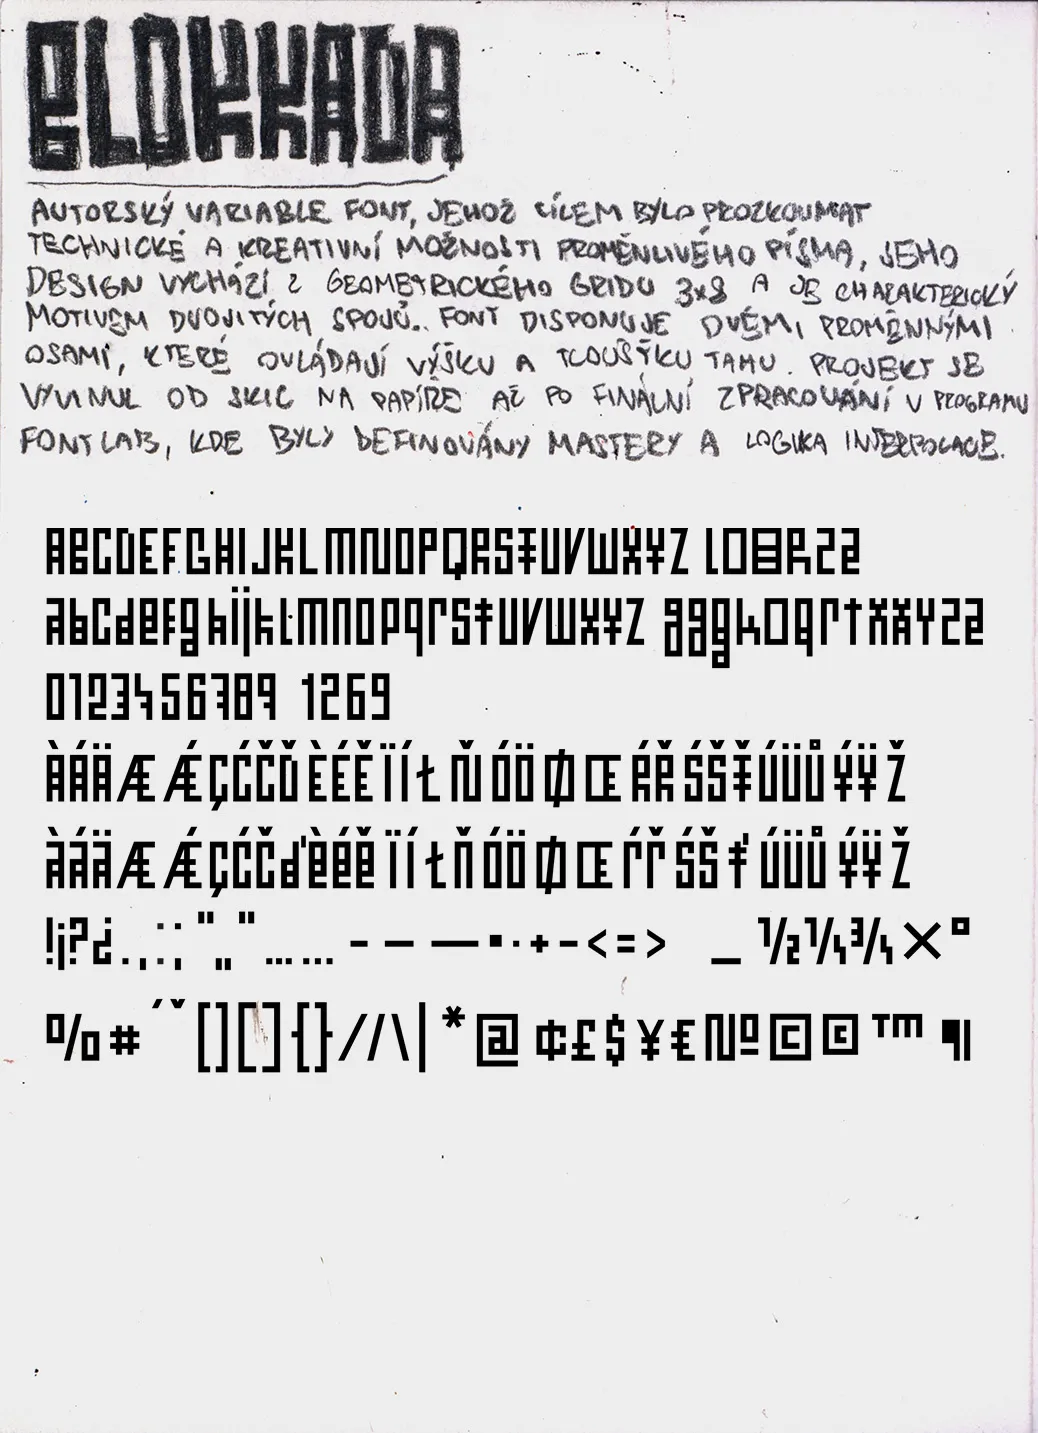 BLOKKADA
AUTORSKÝ VARIABLE FONT, JEHOŽ CÍLEM BYLO PROZKOUMAT
TECHNICKÉ A KREATIVNÍ MOŽNOSTI PROMĚNLIVÉHO PÍSMA, JEHO
DESIGN VYCHÁZÍ Z GEOMETRICKÉHO GRIDU 3x8 A JE CHARAKTERICKÝ
MOTIVEM DVOJITÝCH SPOJŮ.. FONT DISPONUJE DVĚMI PROMĚNNÝMI
OSAMI, KTERÉ OVLÁDAJÍ VÝŠKU A TLOUŠŤKU TAHU. PROJEKT SE
VYVINUL OD SKIC NA PAPÍŘE AŽ PO FINÁLNÍ ZPRACOVÁNÍ V PROGRAMU
FONTLAB, KDE BYLY DEFINOVÁNY MASTERY A LOGIKA INTERPOLACE.
ABCDEFGHIJKLMNOPQRSTUVWXYZ LOBRZ2
abcdefghijklmnopqrstuvwxyz gggkoqrtxxyzz
0123456789 1269
ÀÁÄÆǼÇĆČĎÈÉĚÏÍŁŇÓÖØŒŔŘŚŠŤÚÜŮÝŸŽ
àáäÆǼçćčďèéěïíłňóöøœŕřśšťúüůýÿž
!¡?¿.,:;"„"……-–—▪·+−<=> _½¼¾×°
%#´ˇ[][]{}//\|*@¢£$¥€№©©™¶